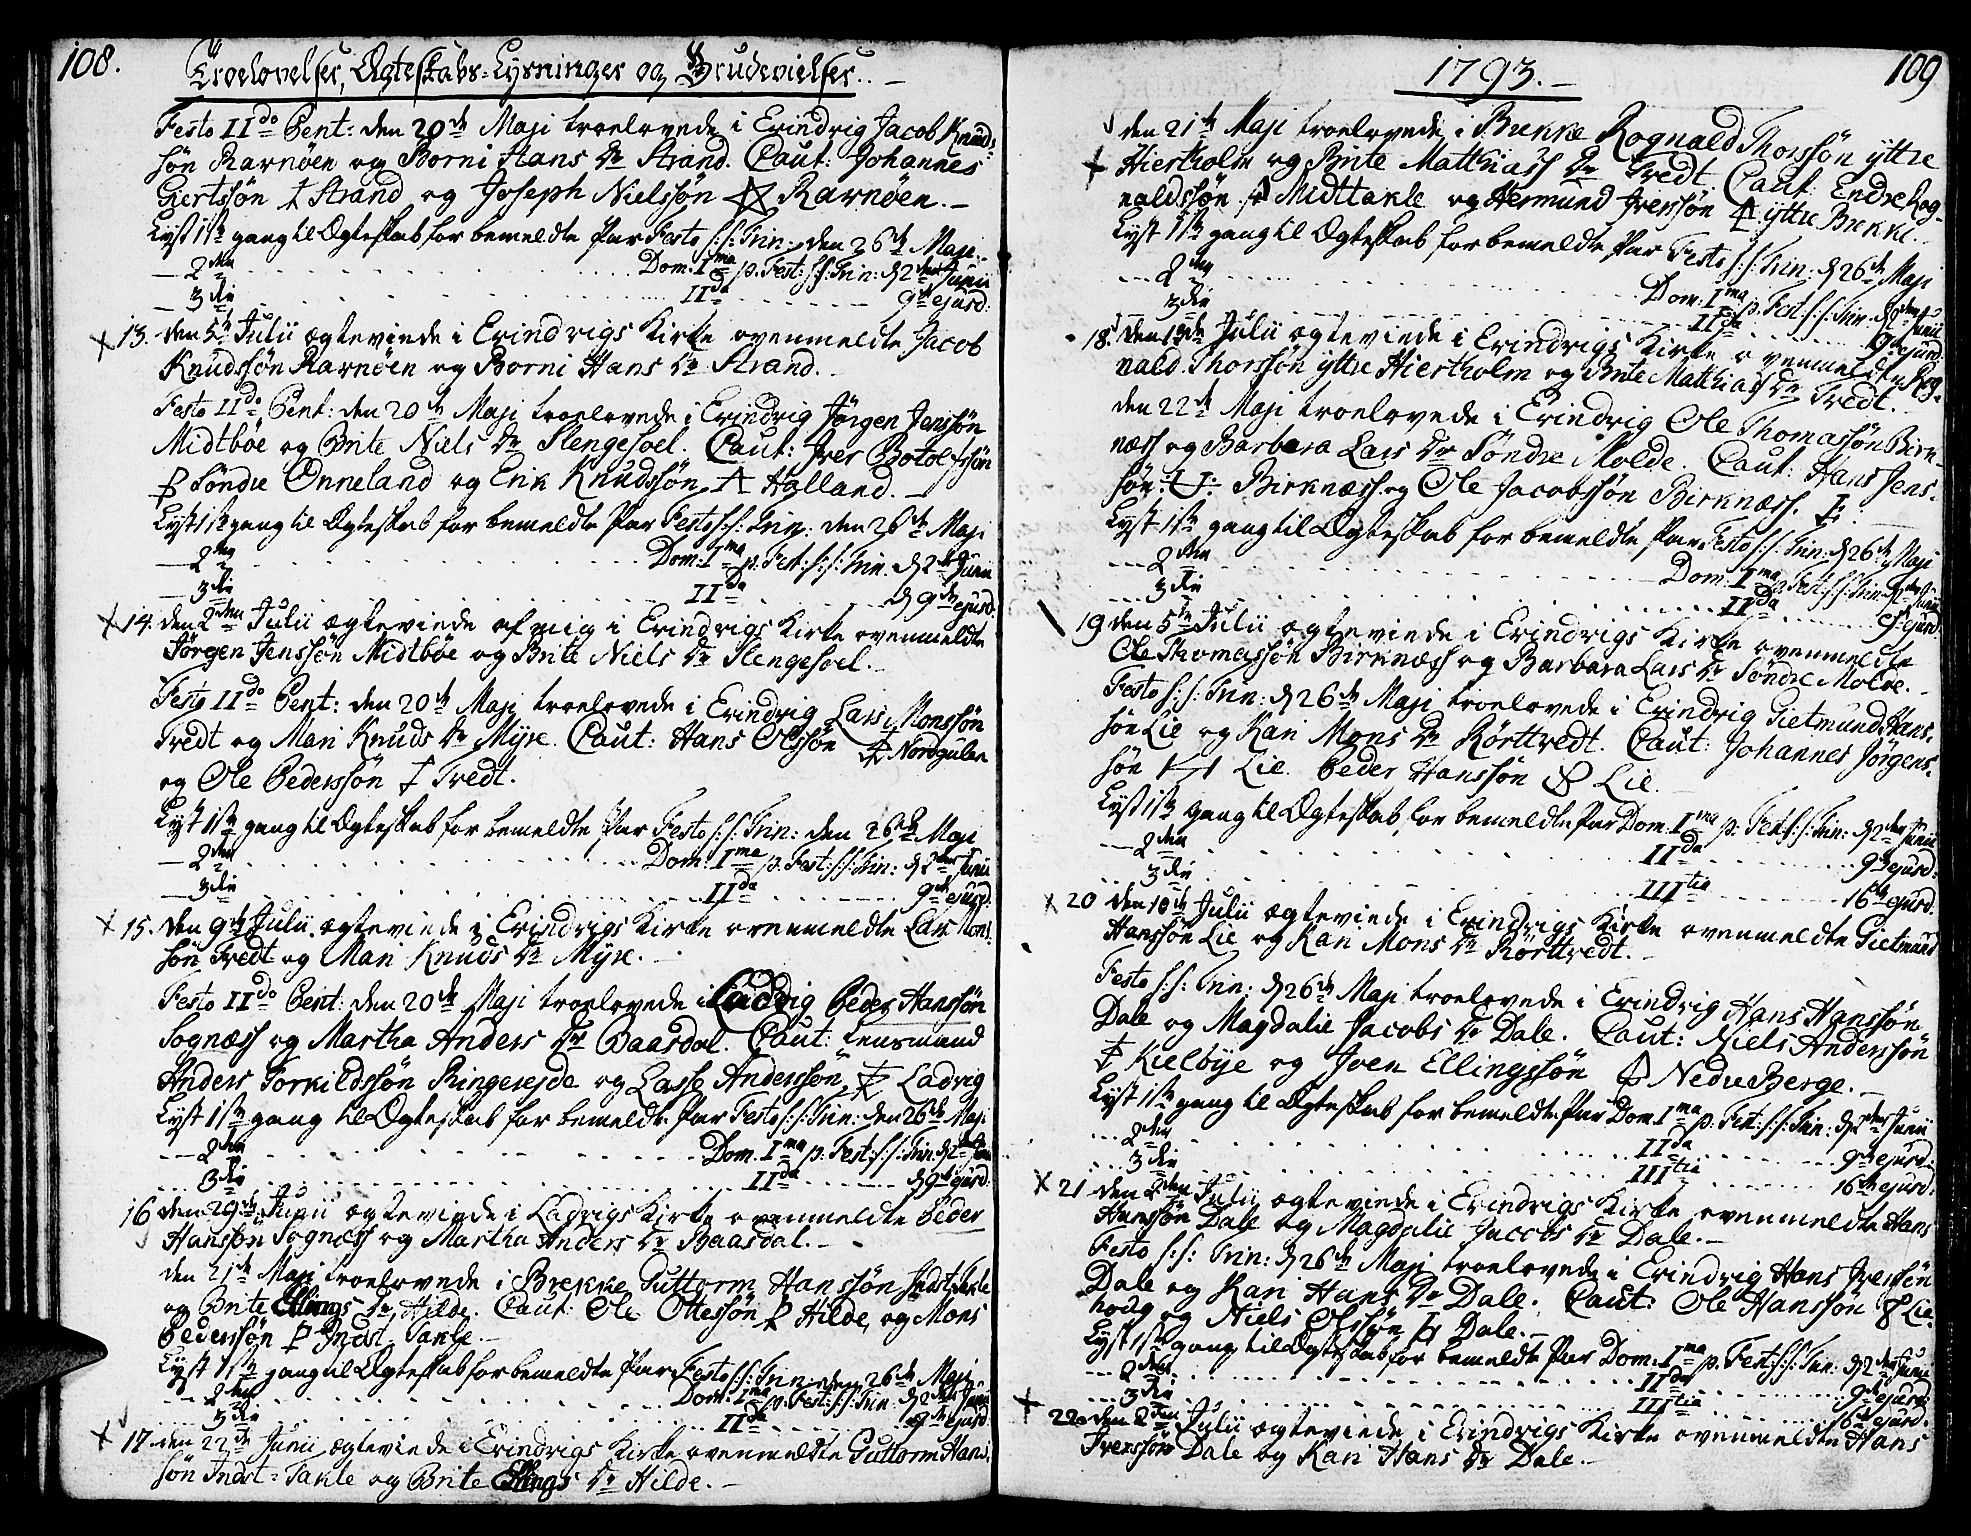 108.
Troelovelser, Ægteskabs-Lysninger og Brudevielser.
Festo IIdo Pent: den 20de Maji troelovede i Evindvig Jacob Knud-
søn Ravnøen og Borni Hans Dr Strand. Caut: Johannes
Giertssøn Strand og Joseph Nielssøn Ravnøen.
Lyst 1ste gang til Ægteskab for bemeldte Par Festo S:S: Trin: den 26de Maji
2den Dom: Ima p. Fest: S:S: Trin: d 2den Junii
3die IIda 9de ejusd:
13. den 5te Julii ægteviede i Evindvigs Kirke ovenmeldte Jacob
Knudssøn Ravnøen og Borni Hans Dr Strand.
Festo IIdo Pent: den 20de Maji troelovede i Evindvig Jørgen Jenssøn
Midtbøe og Brite Niels Dr Slengesoel. Caut: Iver Botolfssøn
Søndre Onneland og Erik Knudssøn Halland.
Lyst 1ste gang til Ægteskab for bemeldte Par Festo S:S: Trin: den 26de Maji
2den Dom: Ima p. Fest: S:S: Trin. d 2den Junii
3die IIda d 9de ejusd.
14. den 2den Julii ægteviede af mig i Evindvigs Kirke ovenmeldte
Jørgen Jenssøn Midtbøe og Brite Niels Dr Slengesoel.
Festo IIdo Pent: den 20de Maji troelovede i Evindvig Lars Monssøn
Tredt og Mari Knuds Dr Myre. Caut: Hans Olssøn Nordgulen
og Ole Pederssøn Tredt.
Lyst 1ste gang til Ægteskab for bemeldte Par Festo S:S: Trin: den 26de Maji
2den Dom: Ima p. Fest: S:S: Trin: d 2den Junii
3die IIda 9de ejusd.
15. den 9de Julii ægteviede i Evindvigs Kirke ovenmeldte Lars Mons-
søn Tredt og Mari Knuds Dr Myre.
Festo IIdo Pent: den 20de Maji troelovede i Ladvig Peder Hanssøn
Sognæss og Martha Anders Dr Baasdal. Caut: Lensmand
Anders Torkildssøn Ringereide og Lasse Anderssøn Ladvig
Lyst 1ste gang til Ægteskab for bemeldte Par Festo S:S: Trin: den 26de Maji
2den Dom. Ima p. Fest: S:S: Trin: d 2den Junii
3die IIda d 9de ejusd.
16 den 29de Junii ægteviede i Ladvigs Kirke ovenmeldte Peder
Hanssøn Sognæss og Martha Anders Dr Baasdal.
den 21de Maji troelovede i Brekke Guttorm Hanssøn Indst. Takle
og Brite Ellings Dr Hilde. Caut: Ole Ottessøn Hilde, og Mons
Pederssøn Indst. Takle.
Lyst 1ste gang til Ægteskab for bemeldte Par Festo S:S: Trin: den 26de Maji
2den Dom: Ima p. Fest: S:S: Trin: d 2den Junii
3die IIda 9de ejusd.
17. den 22de Junii ægteviede i Evindrigs Kirke ovenmeldte Guttorm Hans-
søn Indst: Takle og Brite Ellings Dr Hilde.
1793.
109
den 21de Maji troelovede i Brekke Rognald Thorssøn yttre
Hiertholm og Brite Matthias Dr Tredt. Caut: Endre Rog-
naldssøn Midttakle og Hermund Iverssøn yttre Brekke.
Lyst 1ste gang til Ægteskab for bemeldte Par Festo S:S: Trin: d 26de Maji
2den Dom: Ima p. Fest: S:S: Trin: d 2den Junii
3die IIda 9de ejusd:
18. den Julii ægteviede i Evindrigs Kirke ovenmeldte Rog-
nald Thorssøn yttre Hiertholm og Brite Matthias Dr Tredt.
den 22de Maji troelovede i Evindrig Ole Thomassøn Birk-
næss og Barbara Lars Dr Søndre Molde. Caut: Hans Jens-
søn Birknæss og Ole Jacobssøn Birknæss.
Lyst 1ste gang til Ægteskab for bemeldte Par Festo S:S: Trin: d 26de Maji
2den Dom: Ima p. Fest: S:S: Trin: d 2den Junii
3die IIda 9de ejusd.
19 den 5te Julii ægteviede i Evindrigs Kirke ovenmeldte
Ole Thomassøn Birknæss og Barbara Lars Dr Søndre Molde.
Festo S:S: Trin: d 26de Maji troelovede i Evindrig Gietmund Hans-
søn Lie og Kari Mons Dr Rörttvedt. Caut: Johannes Jörgens-
søn Lie. Peder Hanssøn Lie.
Lyst 1ste gang til Ægteskab for bemeldte Par Dom: Ima p: Fest: S:S: Trin: d 2den Junii
2den IIda 9de ejusd:
3die IIItia 16de ejusd.
20 den 10de Julii ægteviede i Evindrigs Kirke ovenmeldte Gietmund
Hanssøn Lie og Kari Mons Dr Rörttvedt.
Festo S:S: Trin: d 26de Maji troelovede i Evindrig Hans Hanssøn
Dale og Magdalie Jacobs Dr Dale. Caut: Niels Anderssøn
Kielbye og Joen Ellingssøn Nedre Berge.
Lyst 1ste gang til Ægteskab for bemeldte Par Dom: Ima p. Fest: S:S: Trin: d 2den Junii
2den IIda 9de ejusd:
3die IIItia 16de ejusd:
21 den 2den Julii ægteviede i Evindrigs Kirke ovenmeldte Hans
Hanssøn Dale og Magdalie Jacobs Dr Dale.
Festo S:S: Trin: d 26de Maji troelovede i Evindrig Hans Iverssøn
Dale og Kari Hans Dr Dale. Caut: Ole Hanssøn Lie-
houg og Niels Olssøn Dale.
Lyst 1ste gang til Ægteskab for bemeldte Par Dom: Ima p. Fest: S:S: Trin: d 2den Junii
2den IIda 9de ejusd.
3die IIItia 16de ejusd.
22. den 2den Julii ægteviede i Evindrigs Kirke ovenmeldte Hans
Iverssøn Dale og Kari Hans Dr Dale.